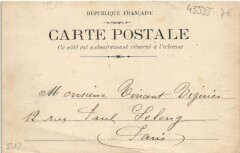 43555 76
RÉPUBLIQUE FRANÇAISE
CARTE POSTALE
Ce côté est exclusivement réservé à l'adresse
Monsieur Vincent Viguier
12 rue Paul Lelong
Paris